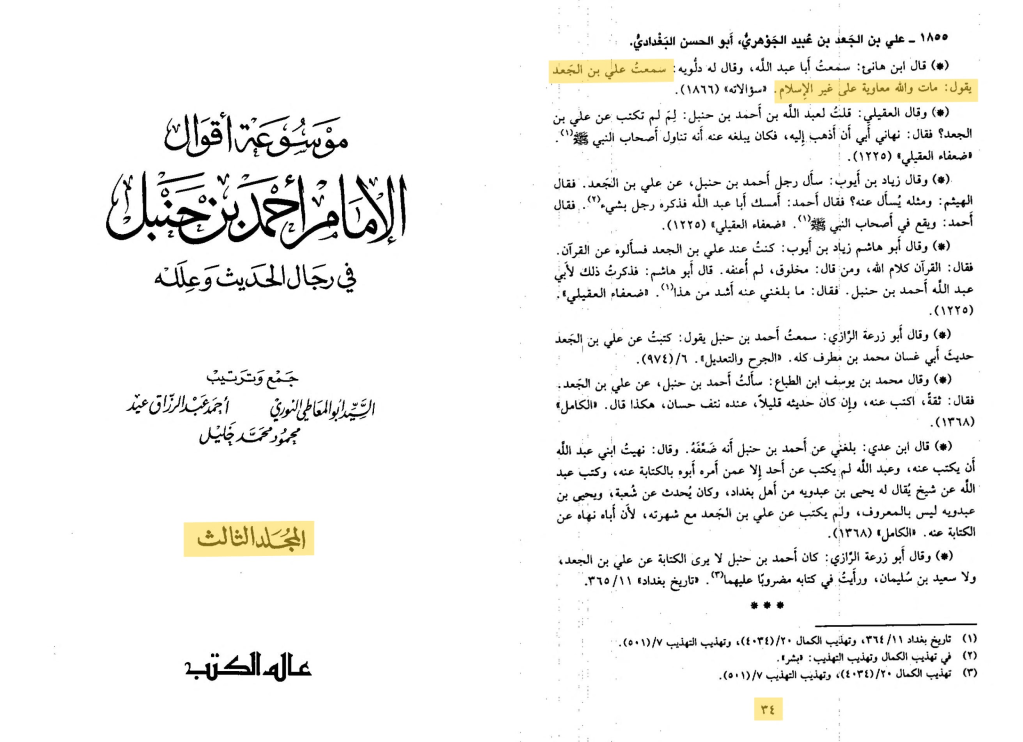 موسوعة أقوال
الإمام أحمد بن حنبل
في رجال الحديث وعلله
جمع وترتيب
السيد أبو المعاطي النوري أحمد عبد الرزاق عيد
محمود محمد خليل
المجلد الثالث
عالم الكتب
١٨٥٥ - علي بن الجعد بن عُبيد الجَوْهريُّ، أبو الحسن البَغْداديُّ.
(*) قال ابن هانئ: سمعتُ أبا عبد الله، وقال له دلُّويه: سمعتُ علي بن الجَعد
يقول: مات والله معاوية على غير الإسلام. «سؤالاته» (١٨٦٦).
(*) وقال العقيلي: قلتُ لعبد الله بن أحمد بن حنبل: لِمَ لم تكتب عن علي بن
الجعد؟ فقال: نهاني أبي أن أذهب إليه، فكان يبلغه عنه أنه تناول أصحاب النبي ﷺ(١).
«ضعفاء العقيلي» (١٢٢٥).
(*) وقال زياد بن أيوب: سأل رجل أحمد بن حنبل، عن علي بن الجَعد. فقال
الهيثم: ومثله يُسأل عنه؟ فقال أحمد: أمسك أبا عبد الله فذكره رجل بشيء(٢). فقال
أحمد: ويقع في أصحاب النبي ﷺ(١). «ضعفاء العقيلي» (١٢٢٥).
(*) وقال أبو هاشم زياد بن أيوب: كنتُ عند علي بن الجعد فسألوه عن القرآن.
فقال: القرآن كلام الله، ومن قال: مخلوق، لم أُعنفه. قال أبو هاشم: فذكرتُ ذلك لأبي
عبد الله أحمد بن حنبل. فقال: ما بلغني عنه أشد من هذا(١). «ضعفاء العقيلي».
(١٢٢٥).
(*) وقال أبو زرعة الرَّازي: سمعتُ أحمد بن حنبل يقول: كتبتُ عن علي بن الجَعد
حديثَ أبي غسان محمد بن مطرف كله. «الجرح والتعديل». ٦/(٩٧٤).
(*) وقال محمد بن يوسف ابن الطباع: سألتُ أحمد بن حنبل، عن علي بن الجَعد.
فقال: ثقةٌ، اكتب عنه، وإن كان حديثه قليلاً، عنده نتف حسان، هكذا قال. «الكامل»
(١٣٦٨).
(*) قال ابن عدي: بلغني عن أحمد بن حنبل أنه ضَعَّفَهُ. وقال: نهيتُ ابني عبد الله
أن يكتب عنه، وعبد الله لم يكتب عن أحد إلا عمن أمره أبوه بالكتابة عنه، وكتب عبد
الله عن شيخ يُقال له يحيى بن عبدويه من أهل بغداد، وكان يُحدث عن شُعبة، ويحيى بن
عبدويه ليس بالمعروف، ولم يكتب عن علي بن الجَعد مع شهرته، لأن أباه نهاه عن
الكتابة عنه. «الكامل» (١٣٦٨).
(*) وقال أبو زرعة الرَّازي: كان أحمد بن حنبل لا يرى الكتابة عن علي بن الجعد،
ولا سعيد بن سُليمان، ورأيتُ في كتابه مضروبًا عليهما(٣). «تاريخ بغداد» ٣٦٥/١١.
***
(١) تاريخ بغداد ٣٦٤/١١، وتهذيب الكمال ٢٠/(٤٠٣٤)، وتهذيب التهذيب ٧/(٥٠١).
(٢) في تهذيب الكمال وتهذيب التهذيب: «بشر».
(٣) تهذيب الكمال ٢٠/(٤٠٣٤)، وتهذيب التهذيب ٧/(٥٠١).
٣٤